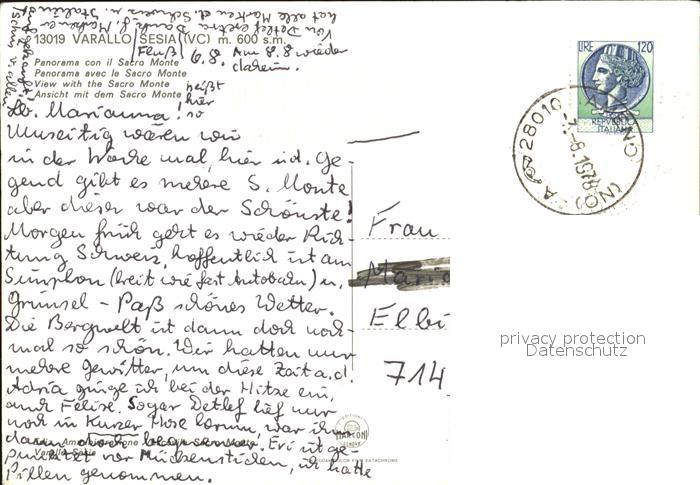 Von Detlef
hat alle Marken d. Schweiz u. Italien
13019 VARALLO SESIA (VC) m. 600 s.m.
Fluß 6.8. Am 8.8 wieder
daheim.
Panorama con il Sacro Monte
Panorama avec le Sacro Monte
View with the Sacro Monte
Ansicht mit dem Sacro Monte
heißt
hier
so
Lb. Marianna!
Umseitig wären wir
in der Woche mal, hier i.d. Ge-
gend gibt es mehere S. Monte
aber dieser war der Schönste!
Morgen früh geht es wieder Rich-
tung Schweiz, hoffentlich ist am
Simplon (breit wie fast Autobahn) u.
Grimsel - Paß schönes Wetter.
Die Bergwelt ist dann doch noch-
mal so schön. Wir hatten nur
mehere Gewitter, um diese Zeit a.d.
Adria ginge ich bei der Hitze ein,
auch Felise. Sogar Detlef lief nur
noch in kurzer Hose herum, war ihm
dann doch Evi ist ge-
punktet vor Mückenstichen, ich hatte
Pillen genommen.
Frau
Maria
Elbi
714
LIRE 120
REPVBBLICA
ITALIANA
28010
8.1978
(NO)
MARCONI
GENOVA
privacy protection
Datenschutz